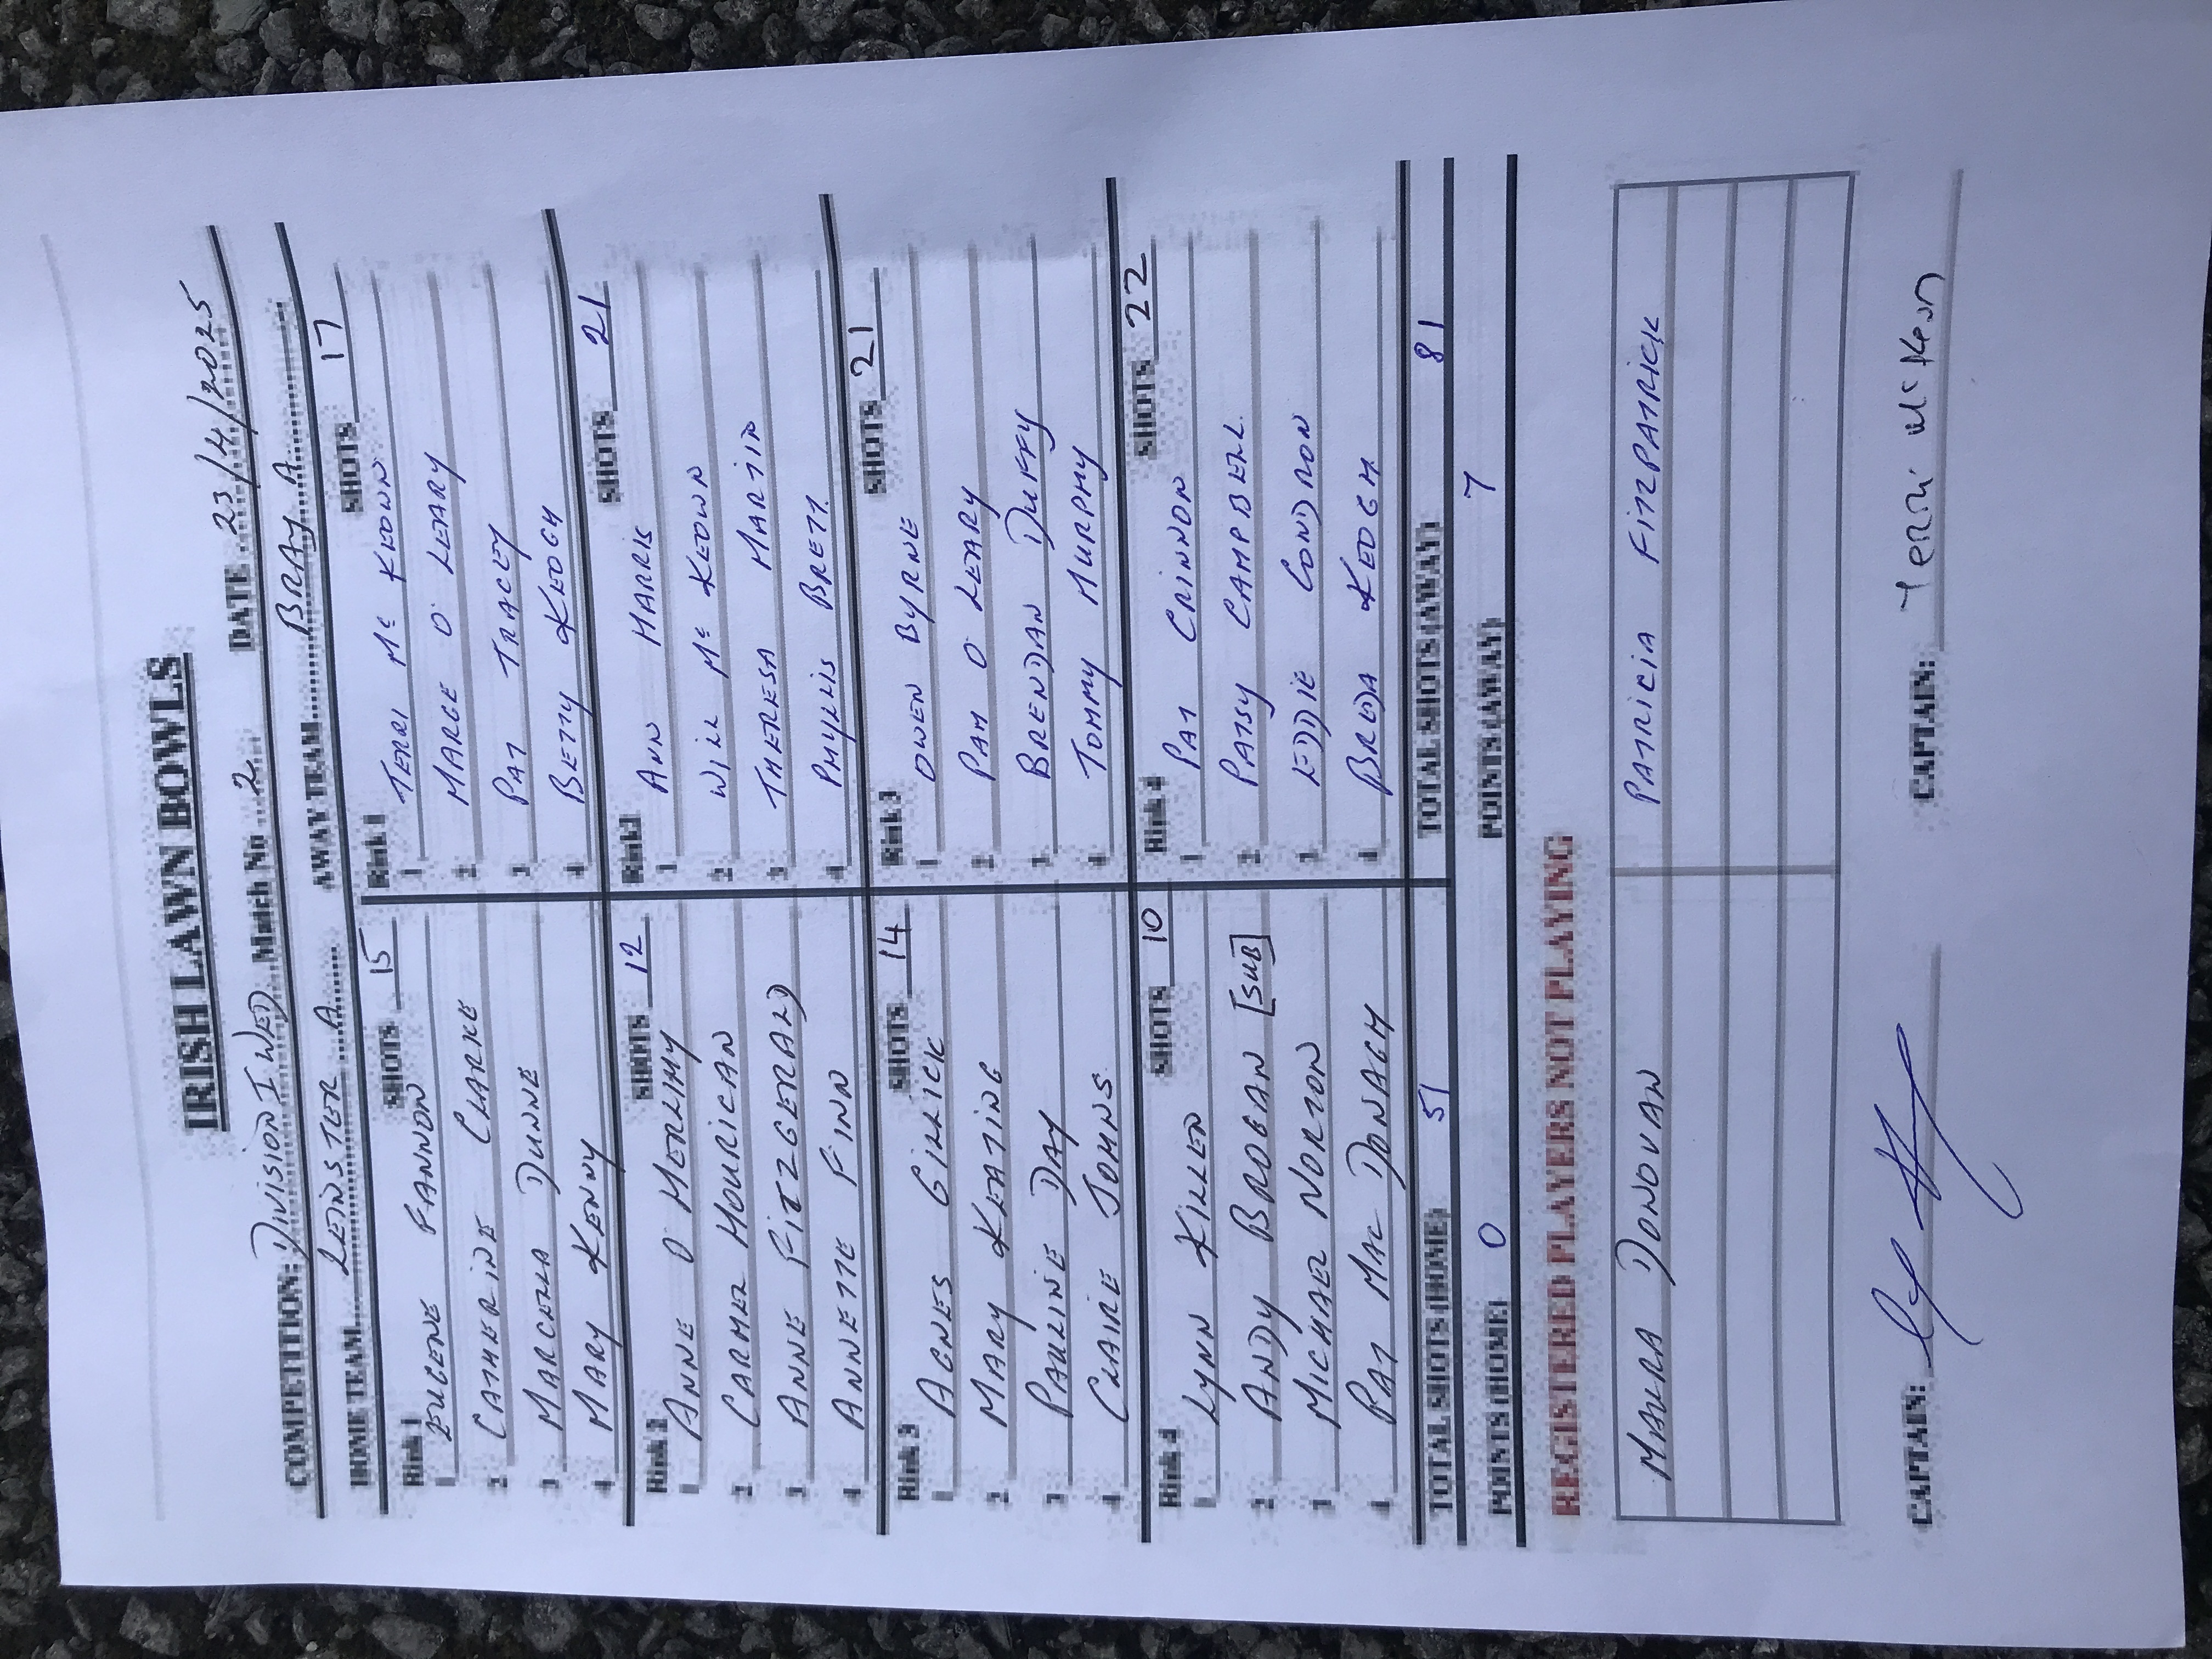 IRISH LAWN BOWLS
COMPETITION: DIVISION I WED Match No 2 DATE 23/4/2025
HOME TEAM LEINSTER A AWAY TEAM BRAY A
Rink 1 SHOTS 15 Rink 1 SHOTS 17
1 EUGENE FANNON 1 TERRI Mc KEOWN
2 CATHERINE CLARKE 2 MARGE O' LEARY
3 MARCELLA DUNNE 3 PAT TRACEY
4 MARY KENNY 4 BETTY KEOGH
Rink 2 SHOTS 12 Rink2 SHOTS 21
1 ANNE O' HERLIHY 1 ANN HARRIS
2 CARMEL HOURICAN 2 WILL Mc KEOWN
3 ANNE FITZGERALD 3 THERESA MARTIN
4 ANNETTE FINN 4 PHYLLIS BRETT
Rink 3 SHOTS 14 Rink 3 SHOTS 21
1 AGNES GILLICK 1 OWEN BYRNE
2 MARY KEATING 2 PAM O LEARY
3 PAULINE DAY 3 BRENDAN DUFFY
4 CLAIRE JOHNS 4 TOMMY MURPHY
Rink 4 SHOTS 10 Rink 4 SHOTS 22
1 LYNN KILLEN 1 PAT CRINNON
2 ANDY BROGAN [SUB] 2 PATSY CAMPBELL
3 MICHAEL NORTON 3 EDDIE CONDRON
4 PAT MAC DONAGH 4 BREDA KEOGH
TOTAL SHOTS (HOME) 51 TOTAL SHOTS (AWAY) 81
POINTS (HOME) 0 POINTS (AWAY) 7
REGISTERED PLAYERS NOT PLAYING
MAURA DONOVAN PATRICIA FITZPATRICK
CAPTAIN: CAPTAIN: Terri McKeon